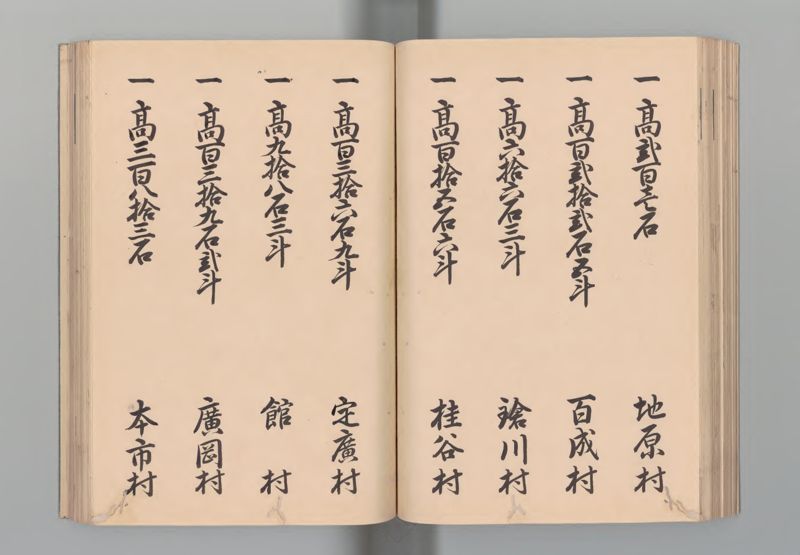 一 高弐百壱石 地原村
一 高百弐拾弐石五斗 百成村
一 高六拾六石三斗 瑲川村
一 高百拾五石六斗 桂谷村
一 高百三拾六石九斗 定廣村
一 高九拾八石三斗 館村
一 高百三拾九石弐斗 廣岡村
一 高三百八拾三石 本市村